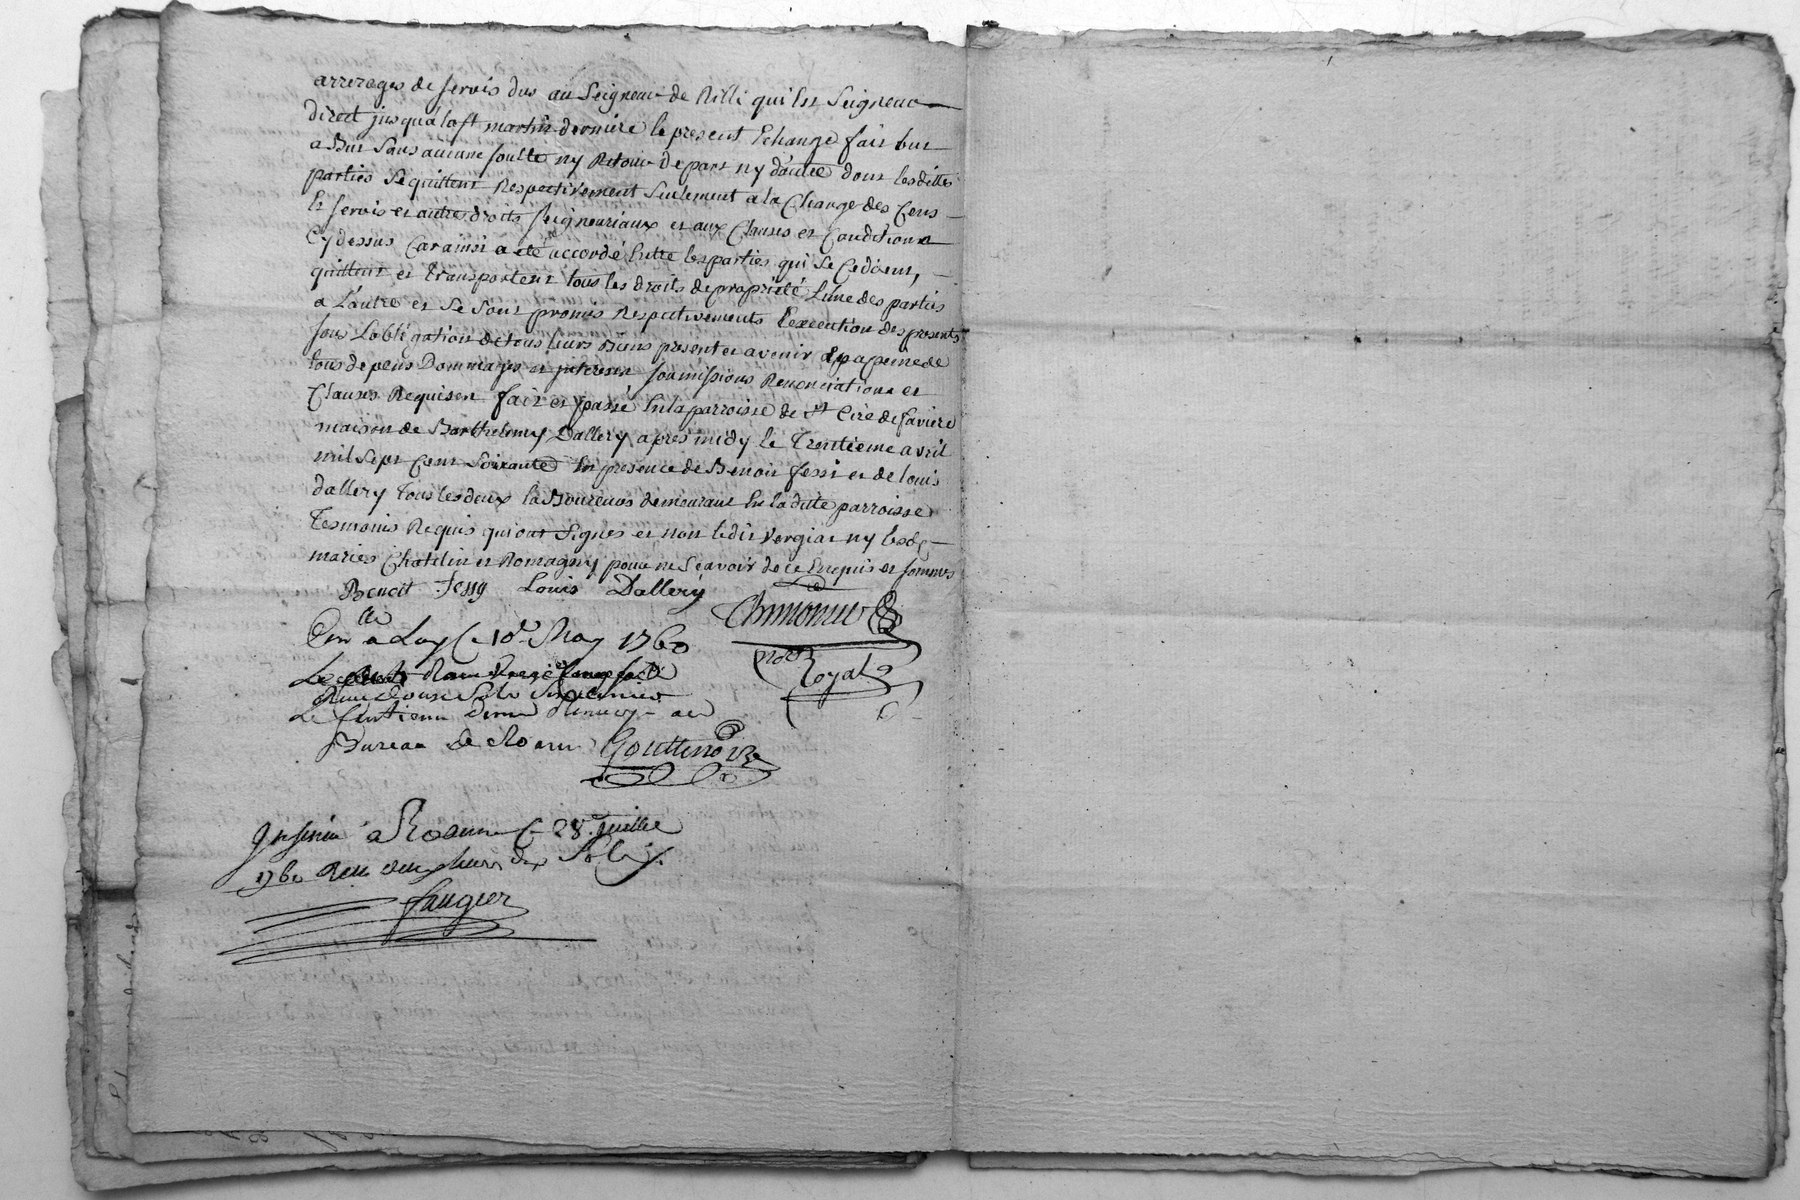 arrerages de servis dus au Seigneur de Rilli qui Est Seigneur
direct jusqu'a la st martin derniere le present Echange fait but
a But Sans aucune soulte ny Retour de part ny d'autre dont lesdittes
parties Se quittent Respectivement Seulement a la Charge des Cens
Et servis et autres droits seigneuriaux et aux Clauses et Conditions
Cy dessus Car ainsi a été accordé Entre les parties qui Se Cedent,
quittent et transportent tous les droits de propriété L'une des parties
a L'autre et Se Sont promis Respectivements L'execution des presents
sous Lobligation de tous leurs Biens present et avenir a peine de
tous depens Dommages et interests soumissions Renonciations et
Clauses Requises fait et passé En la parroisse de st Cire de faviere
maison de Barthelemy Dallery apres midy le Trentieme avril
mil Sept Cent Soixante En presence de Benoit fessi et de louis
dallery Tous les deux laboureurs demeurant En la ditte parroisse
Tesmoins Requis qui ont Signes et non ledit Vergiat ny lesd.
maries Chatelin et Romagny pour ne Scavoir de ce Enquis et sommes
Benoit fessy Louis Dallery
Chimonier
Con lle a Lay le 10e May 1760
not Royal
Le centieme denier
Bureau de Roanne Gouttenoire
Insinué a Roanne le 28e Juillet
1760 Reçu sols
faugier